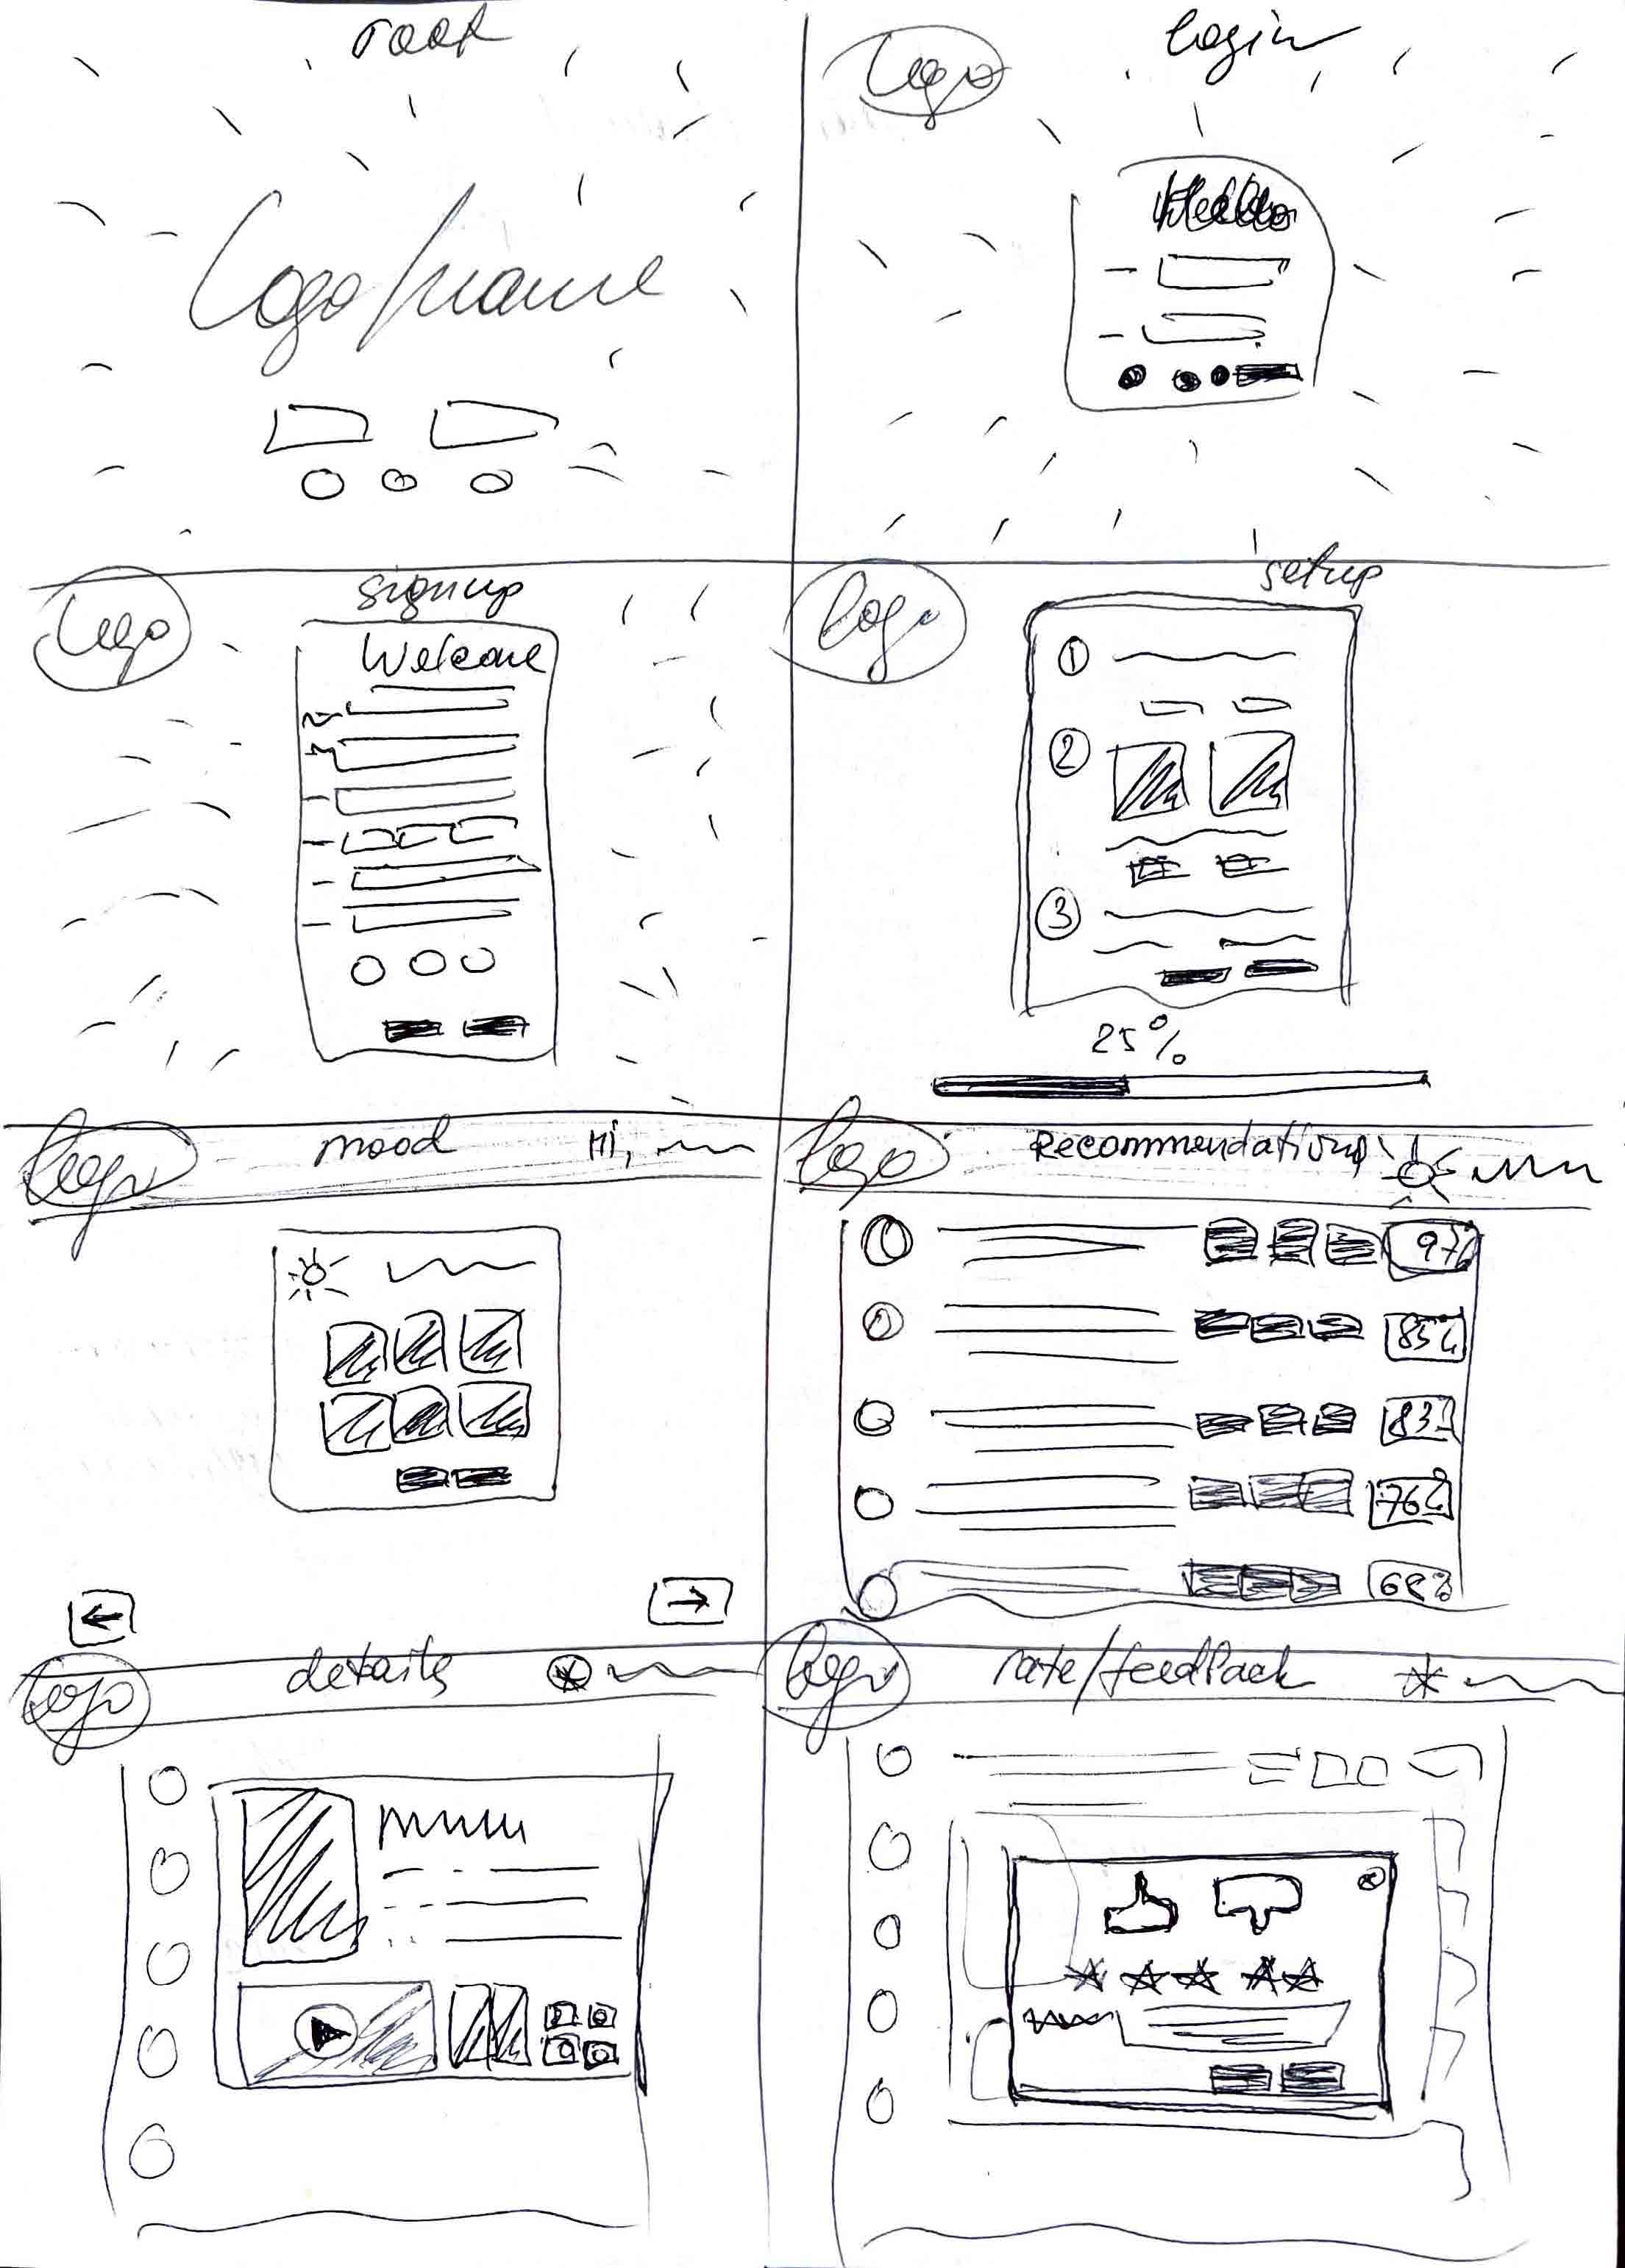 root
Logo/name
login
Logo
Hello
signup
Logo
Welcome
setup
Logo
1
2
3
25%
Logo
mood
Hi,
Logo
Recommendations
97%
85%
83%
76%
68%
Logo
details
Logo
rate/feedback